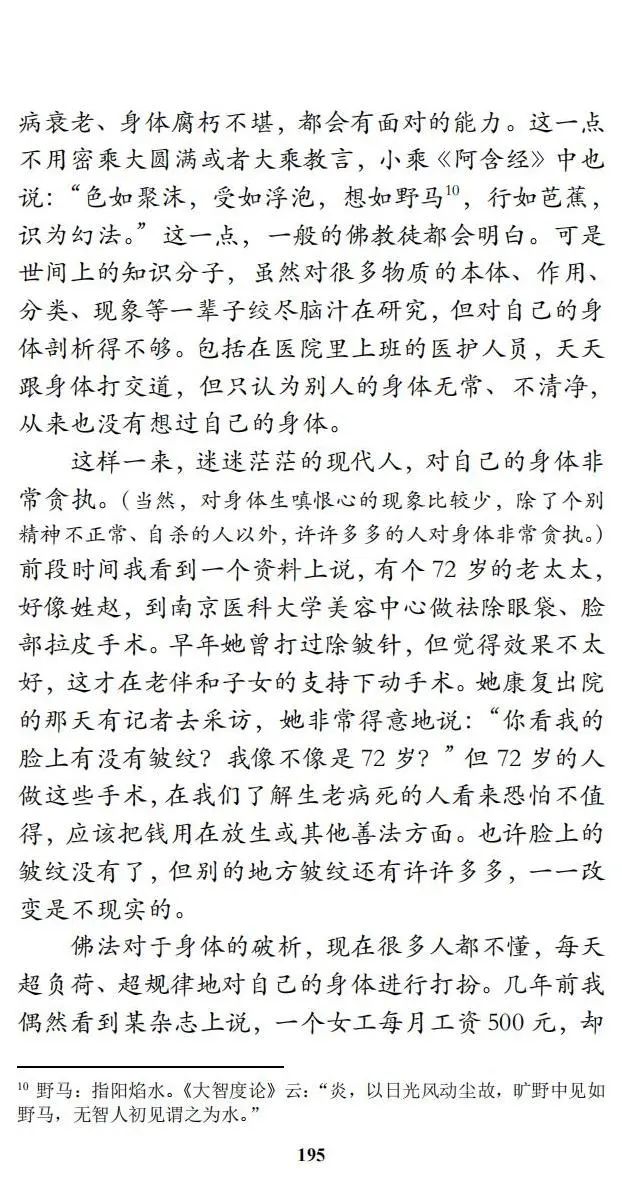 病衰老、身体腐朽不堪，都会有面对的能力。这一点
不用密乘大圆满或者大乘教言，小乘《阿含经》中也
说：“色如聚沫，受如浮泡，想如野马10，行如芭蕉，
识为幻法。”这一点，一般的佛教徒都会明白。可是
世间上的知识分子，虽然对很多物质的本体、作用、
分类、现象等一辈子绞尽脑汁在研究，但对自己的身
体剖析得不够。包括在医院里上班的医护人员，天天
跟身体打交道，但只认为别人的身体无常、不清净，
从来也没有想过自己的身体。
这样一来，迷迷茫茫的现代人，对自己的身体非
常贪执。（当然，对身体生嗔恨心的现象比较少，除了个别
精神不正常、自杀的人以外，许许多多的人对身体非常贪执。）
前段时间我看到一个资料上说，有个 72 岁的老太太，
好像姓赵，到南京医科大学美容中心做祛除眼袋、脸
部拉皮手术。早年她曾打过除皱针，但觉得效果不太
好，这才在老伴和子女的支持下动手术。她康复出院
的那天有记者去采访，她非常得意地说：“你看我的
脸上有没有皱纹？我像不像是 72 岁？”但 72 岁的人
做这些手术，在我们了解生老病死的人看来恐怕不值
得，应该把钱用在放生或其他善法方面。也许脸上的
皱纹没有了，但别的地方皱纹还有许许多多，一一改
变是不现实的。
佛法对于身体的破析，现在很多人都不懂，每天
超负荷、超规律地对自己的身体进行打扮。几年前我
偶然看到某杂志上说，一个女工每月工资 500 元，却
10 野马：指阳焰水。《大智度论》云：“炎，以日光风动尘故，旷野中见如
野马，无智人初见谓之为水。”
195